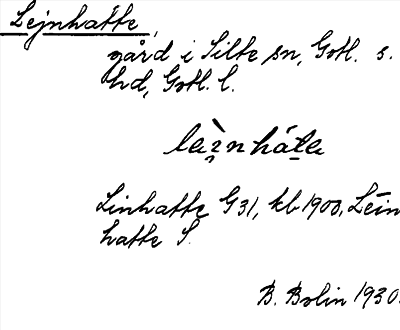 Lejnhatte,
gård i Silte sn, Gotl. s.
hd, Gotl. l.
Linhatte G31, kb 1900, Lein
hatte S.
B. Bolin 1930.